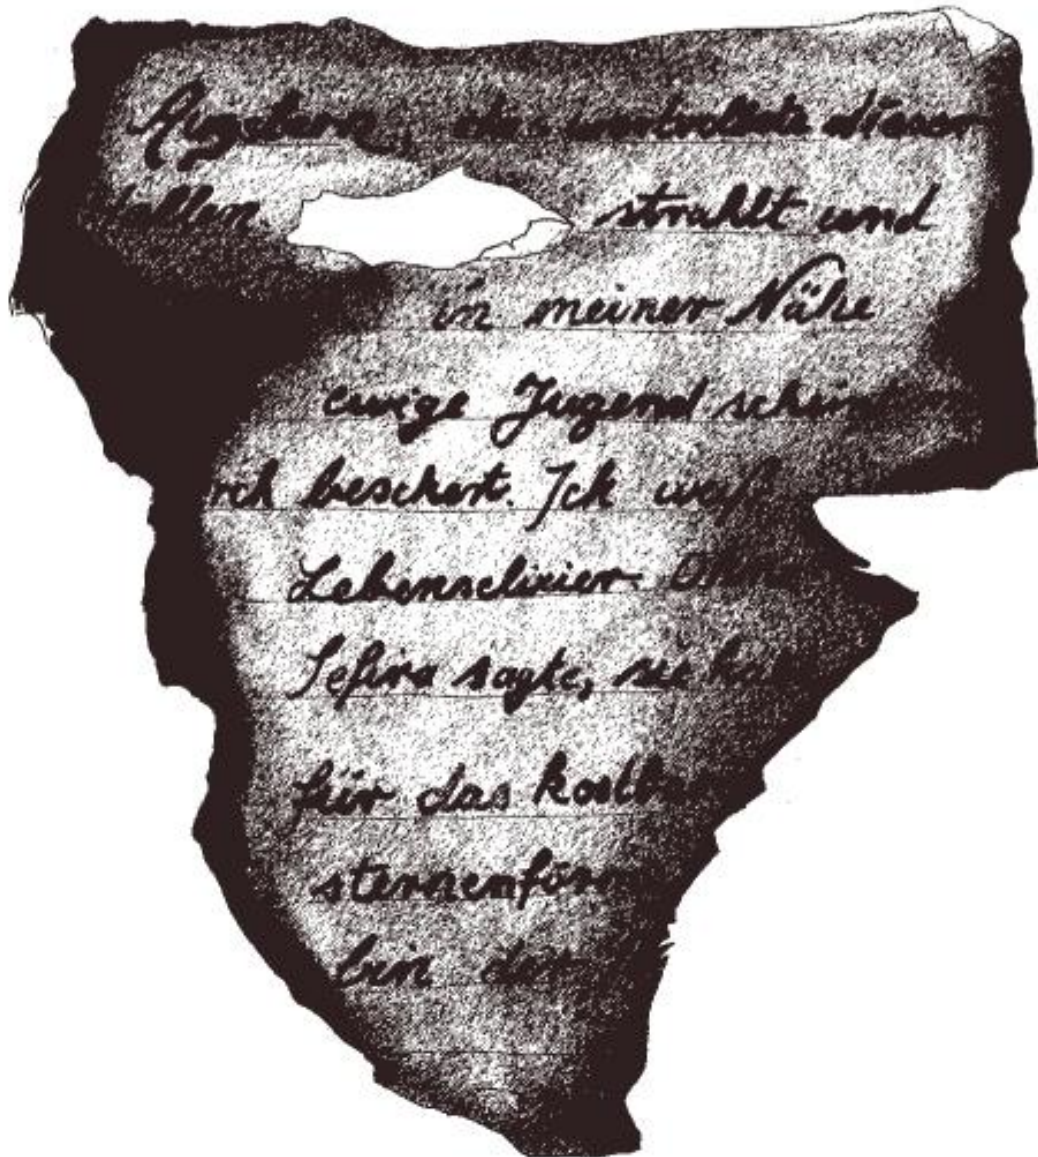 das wertvollste dieser
Hallen strahlt und
in meiner Nähe
ewige Jugend schein
rch beschert. Ich weiß
Lebenselixier. Ohn
Sefira sagte, sie ha
für das kostba
sternenför
bin der